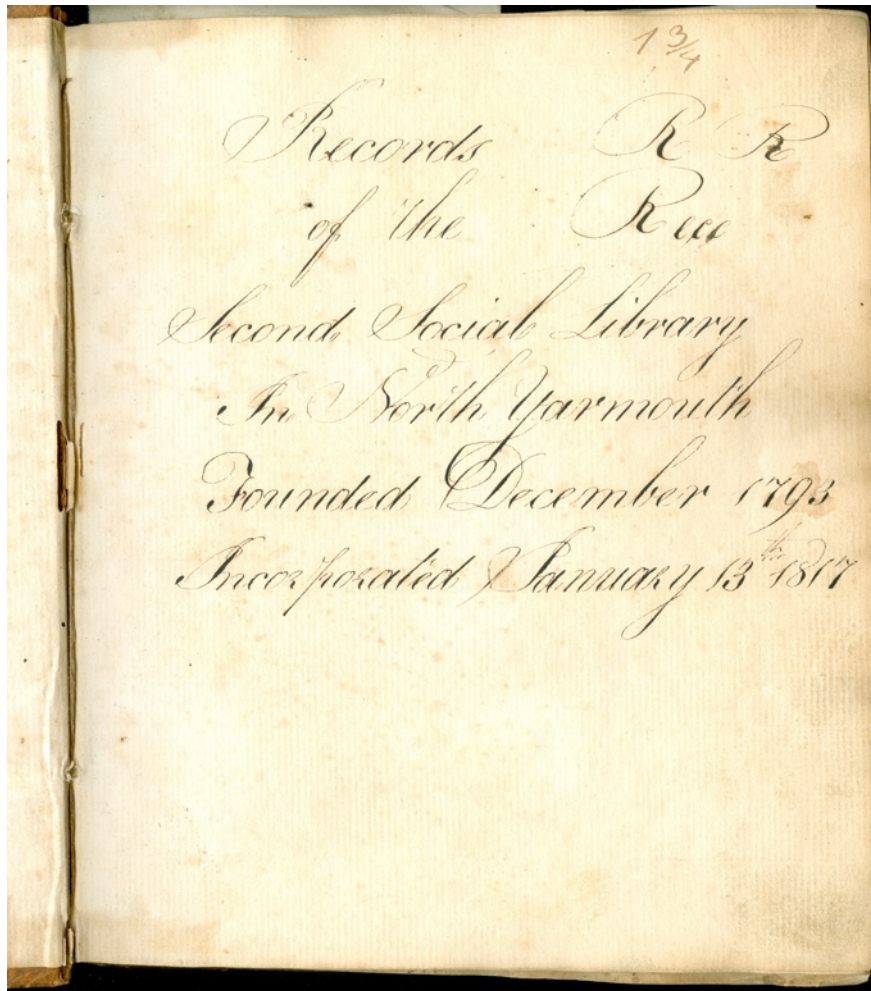 1 3/4
Records R R
of the Recc
Second Social Library
In North Yarmouth
Founded December 1793
Incorporated January 13th 1817